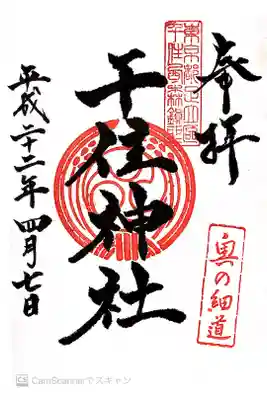 奉拝
東京都足立区
千住宮元町鎮座
千住神社
奥の細道
平成二十二年四月七日
CamScannerでスキャン